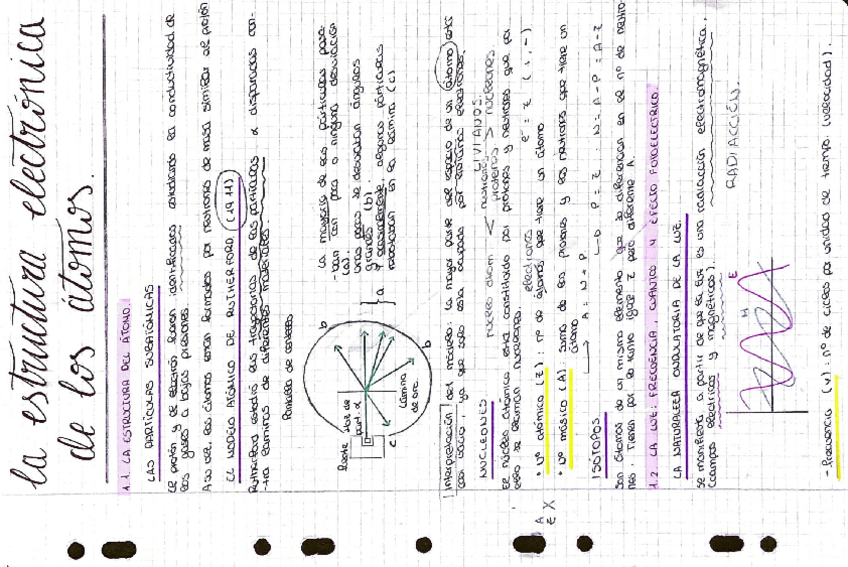 la estructura electrónica
de los átomos.
1.1. LA ESTRUCTURA DEL ÁTOMO.
LAS PARTÍCULAS SUBATÓMICAS
El protón y el electrón fueron identificados estudiando la conductividad de
los gases a bajas presiones.
A su vez, los átomos están formados por neutrones de masa similar al protón
EL MODELO ATÓMICO DE RUTHERFORD. (1911)
Rutherford estudió las trayectorias de las partículas α disparadas con-
tra láminas de diferentes materiales.
Pantalla de
b
Fuente
Haz de
part. α
c
Lámina
de oro.
b
a
La mayoría de las partículas pasa-
ban con poca o ninguna desviación
(a).
Unas pocas se desviaban ángulos
grandes (b).
Y algunas partículas
en la lámina (c)
Interpretación del modelo: la mayor parte del espacio de un átomo está
casi vacío, ya que solo está ocupada por electrones.
NUCLEONES
núcleo átom. < neutrones protones > nucleones.
LIVIANOS:
El núcleo atómico está constituido por protones y neutrones que por
ello se llaman nucleones.
electrones
e⁻ = Z (+, -)
• Nº atómico (Z): nº de que tiene un átomo.
• Nº másico (A) suma de los protones y los neutrones que tiene un
átomo
A
Z X
A = N + P
P = Z . N = A - P = A - Z
ISÓTOPOS.
Son átomos de un mismo elemento que se diferencian en el nº de neutro-
nes. Tienen por lo tanto igual Z pero diferente A.
1.2. LA LUZ: FRECUENCIA, CUANTOS Y EFECTO FOTOELÉCTRICO.
LA NATURALEZA ONDULATORIA DE LA LUZ.
Se manifiesta a partir de que la luz es una radiación electromagnética.
(campos eléctricos y magnéticos).
E
H
RADIACCIÓN.
- Frecuencia (ν): nº de ciclos por unidad de tiempo. (velocidad).